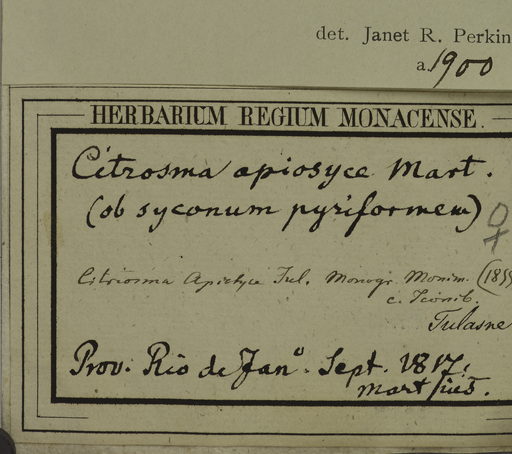 det. Janet R. Perkin
a. 1900
HERBARIUM REGIUM MONACENSE.
Citrosma apiosyce Mart.
(ob syconum pyriformem) ♀
Citriosma Apiosyce Tul. Monogr. Monim. (1855
c. Iconib.
Tulasne
Prov. Rio de Jano. Sept. 1817.
Martius.